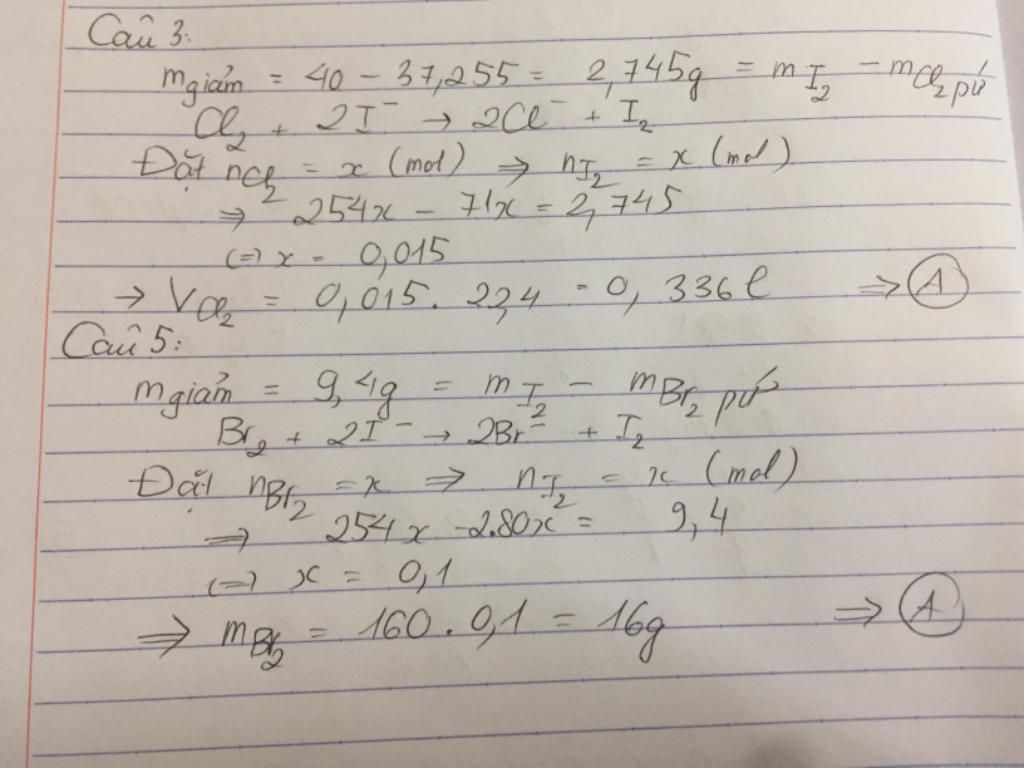 Câu 3:
m giảm = 40 - 37,255 = 2,745g = m I₂ - m Cl₂ pứ
Cl₂ + 2I⁻ → 2Cl⁻ + I₂
Đặt nCl₂ = x (mol) ⇒ nI₂ = x (mol)
⇒ 254x - 71x = 2,745
(=) x = 0,015
→ VCl₂ = 0,015. 22,4 = 0,336 l ⇒ A
Câu 5:
m giảm = 9,4g = m I₂ - m Br₂ pứ
Br₂ + 2I⁻ → 2Br⁻ + I₂
Đặt nBr₂ = x ⇒ nI₂ = x (mol)
⇒ 254x - 2.80x = 9,4
(=) x = 0,1
⇒ mBr₂ = 160 . 0,1 = 16g ⇒ A